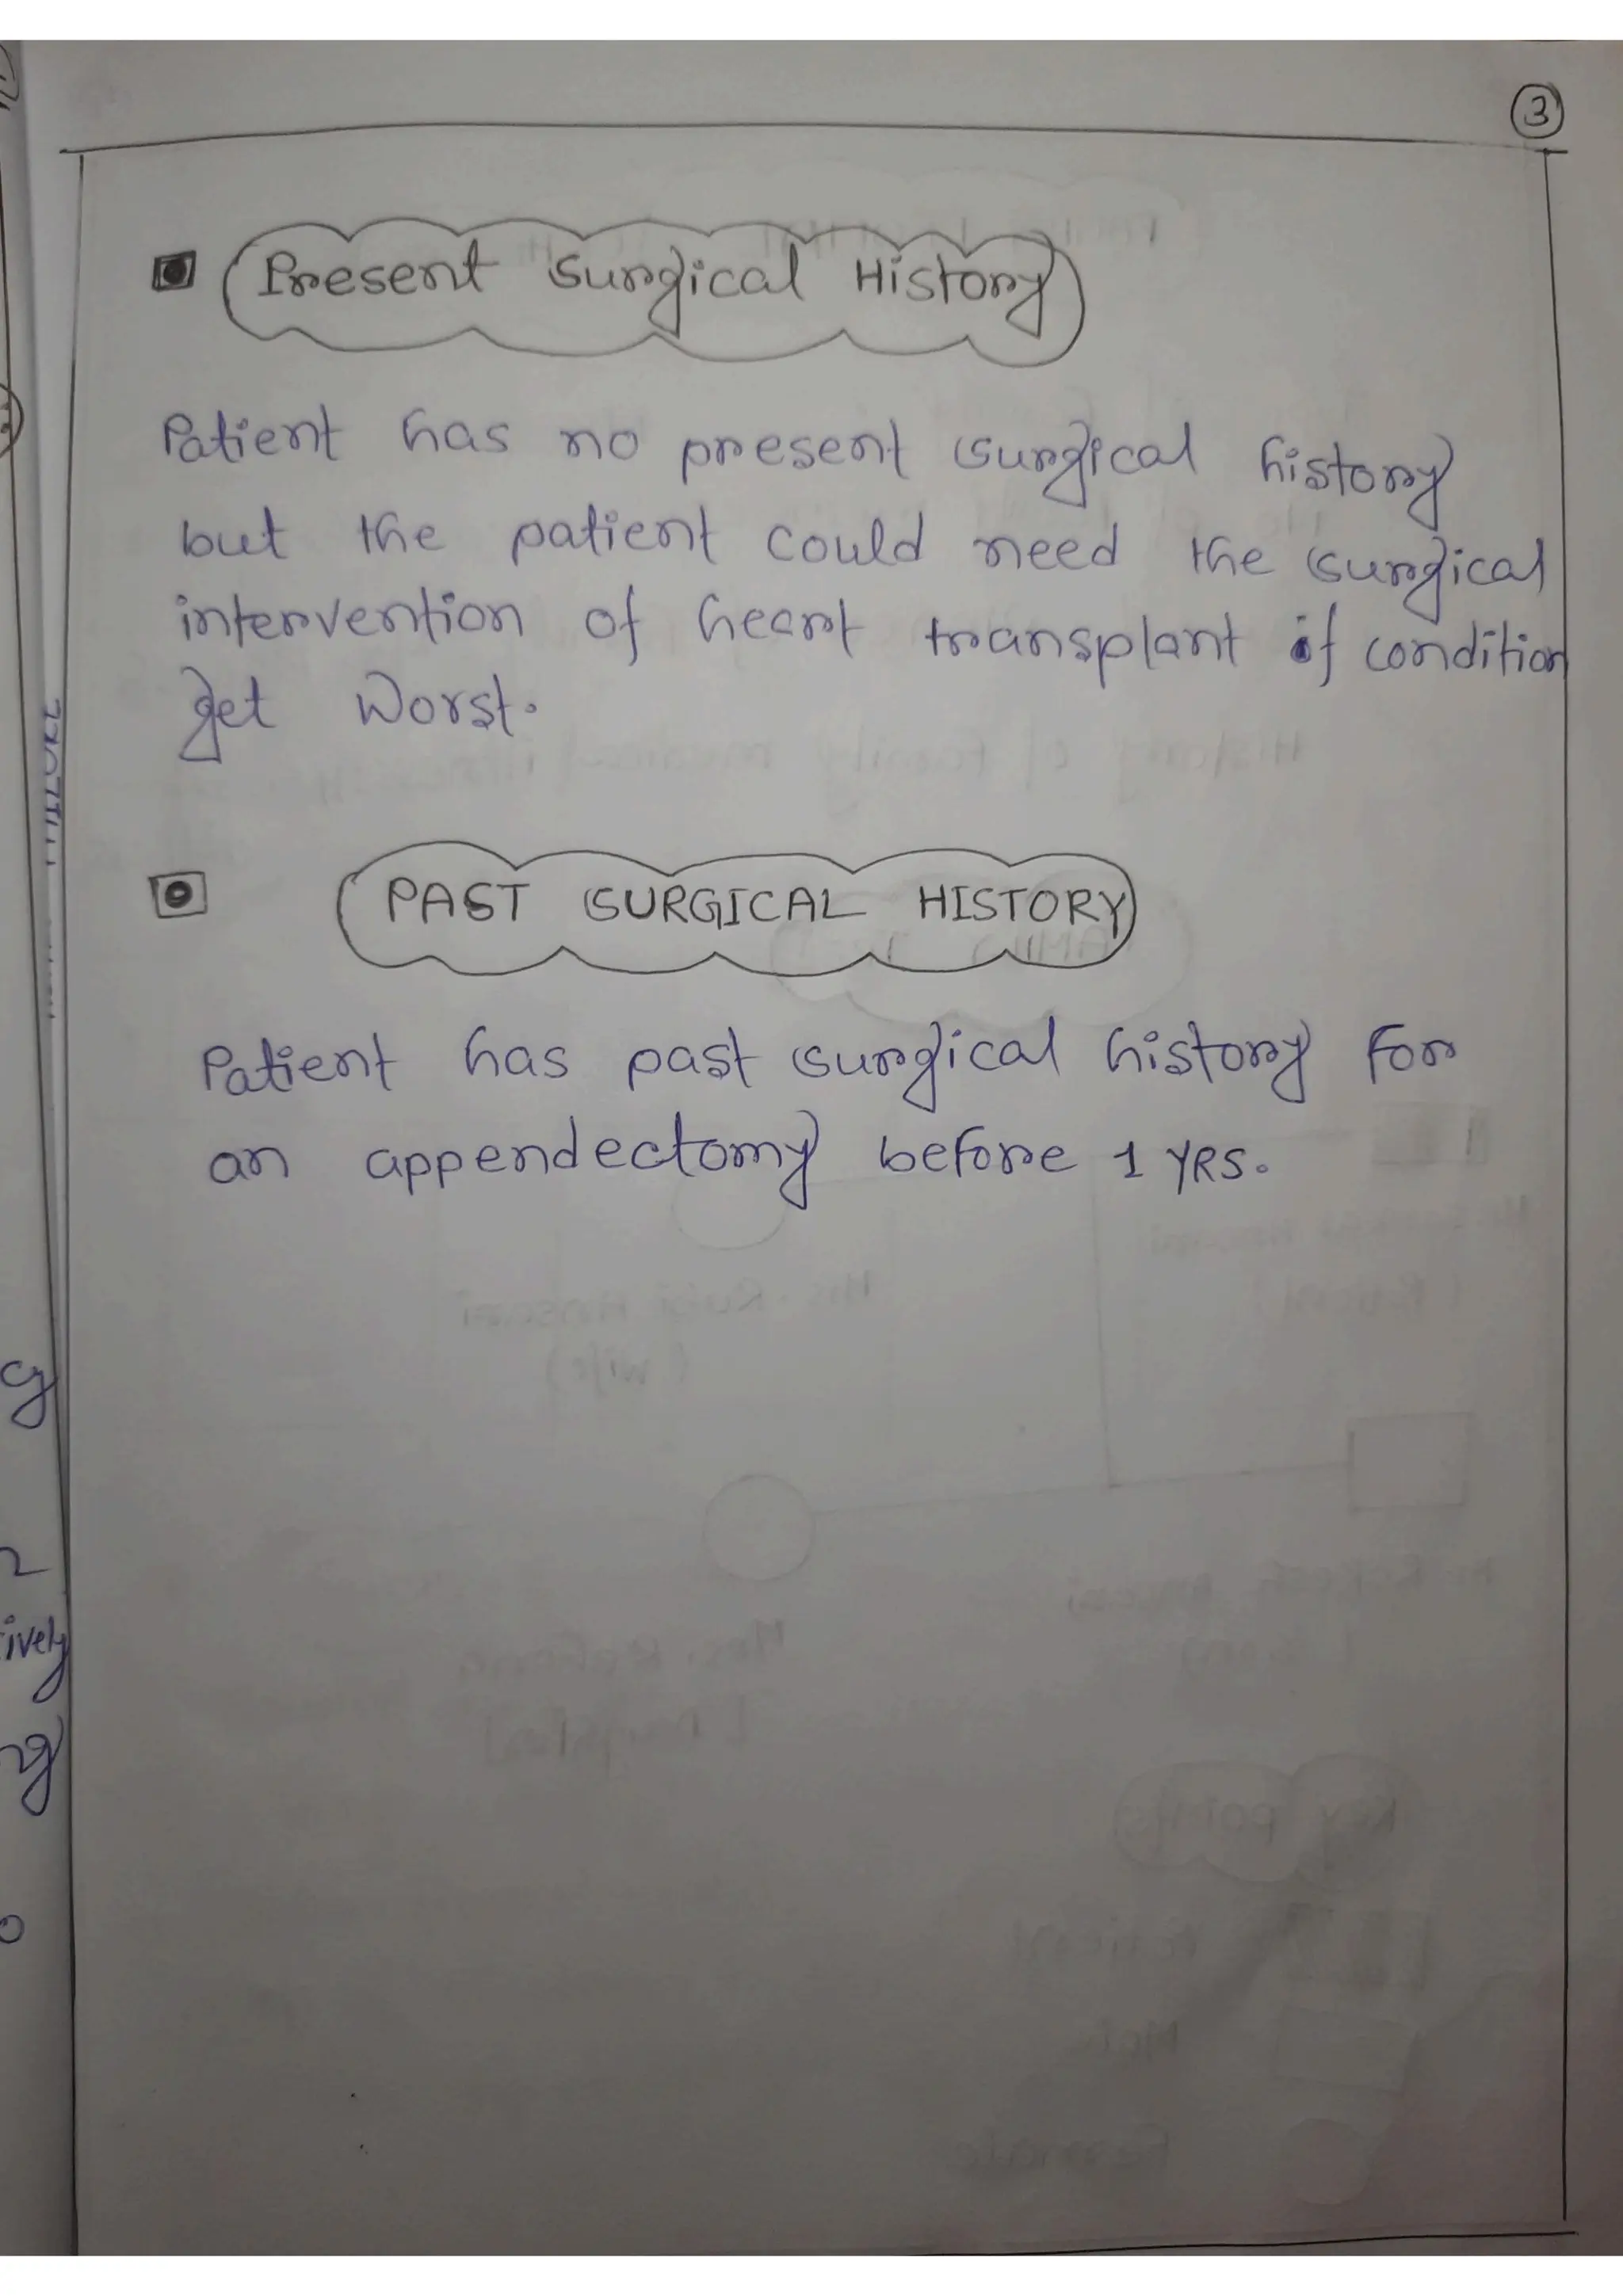 3
Present Surgical History
Patient has no present surgical history
but the patient could need the surgical
intervention of heart transplant if condition
get worst.
PAST SURGICAL HISTORY
Patient has past surgical history for
an appendectomy before 1 YRS.
ively